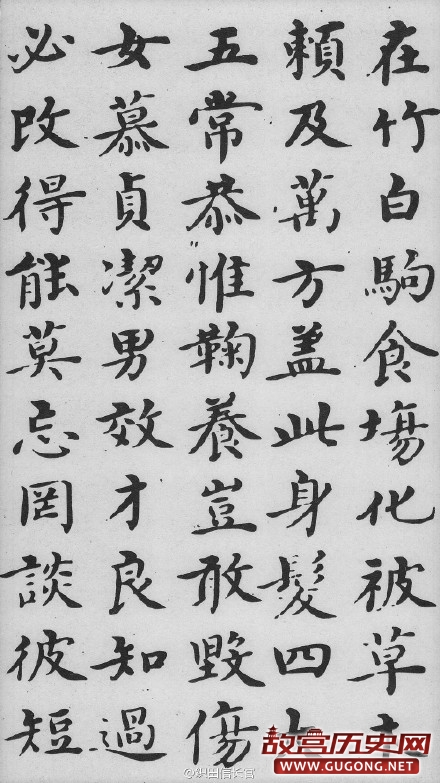 在竹白駒食塲化被草木
頼及萬方盖此身髮四大
五常恭惟鞠養豈敢毀傷
女慕貞潔男效才良知過
必改得能莫忘罔談彼短
@织田信长官
故宫历史网
WWW.GUGONG.NET